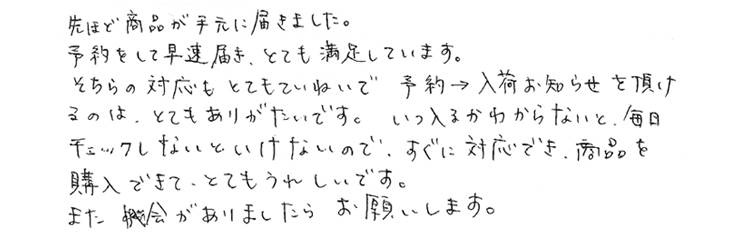 先ほど商品が手元に届きました。
予約をして早速届き、とても満足しています。
そちらの対応もとてもていねいで 予約→入荷お知らせを頂け
るのは、とてもありがたいです。 いつ入るかわからないと、毎日
チェックしないといけないので、すぐに対応でき、商品を
購入できて、とてもうれしいです。
また機会がありましたらお願いします。